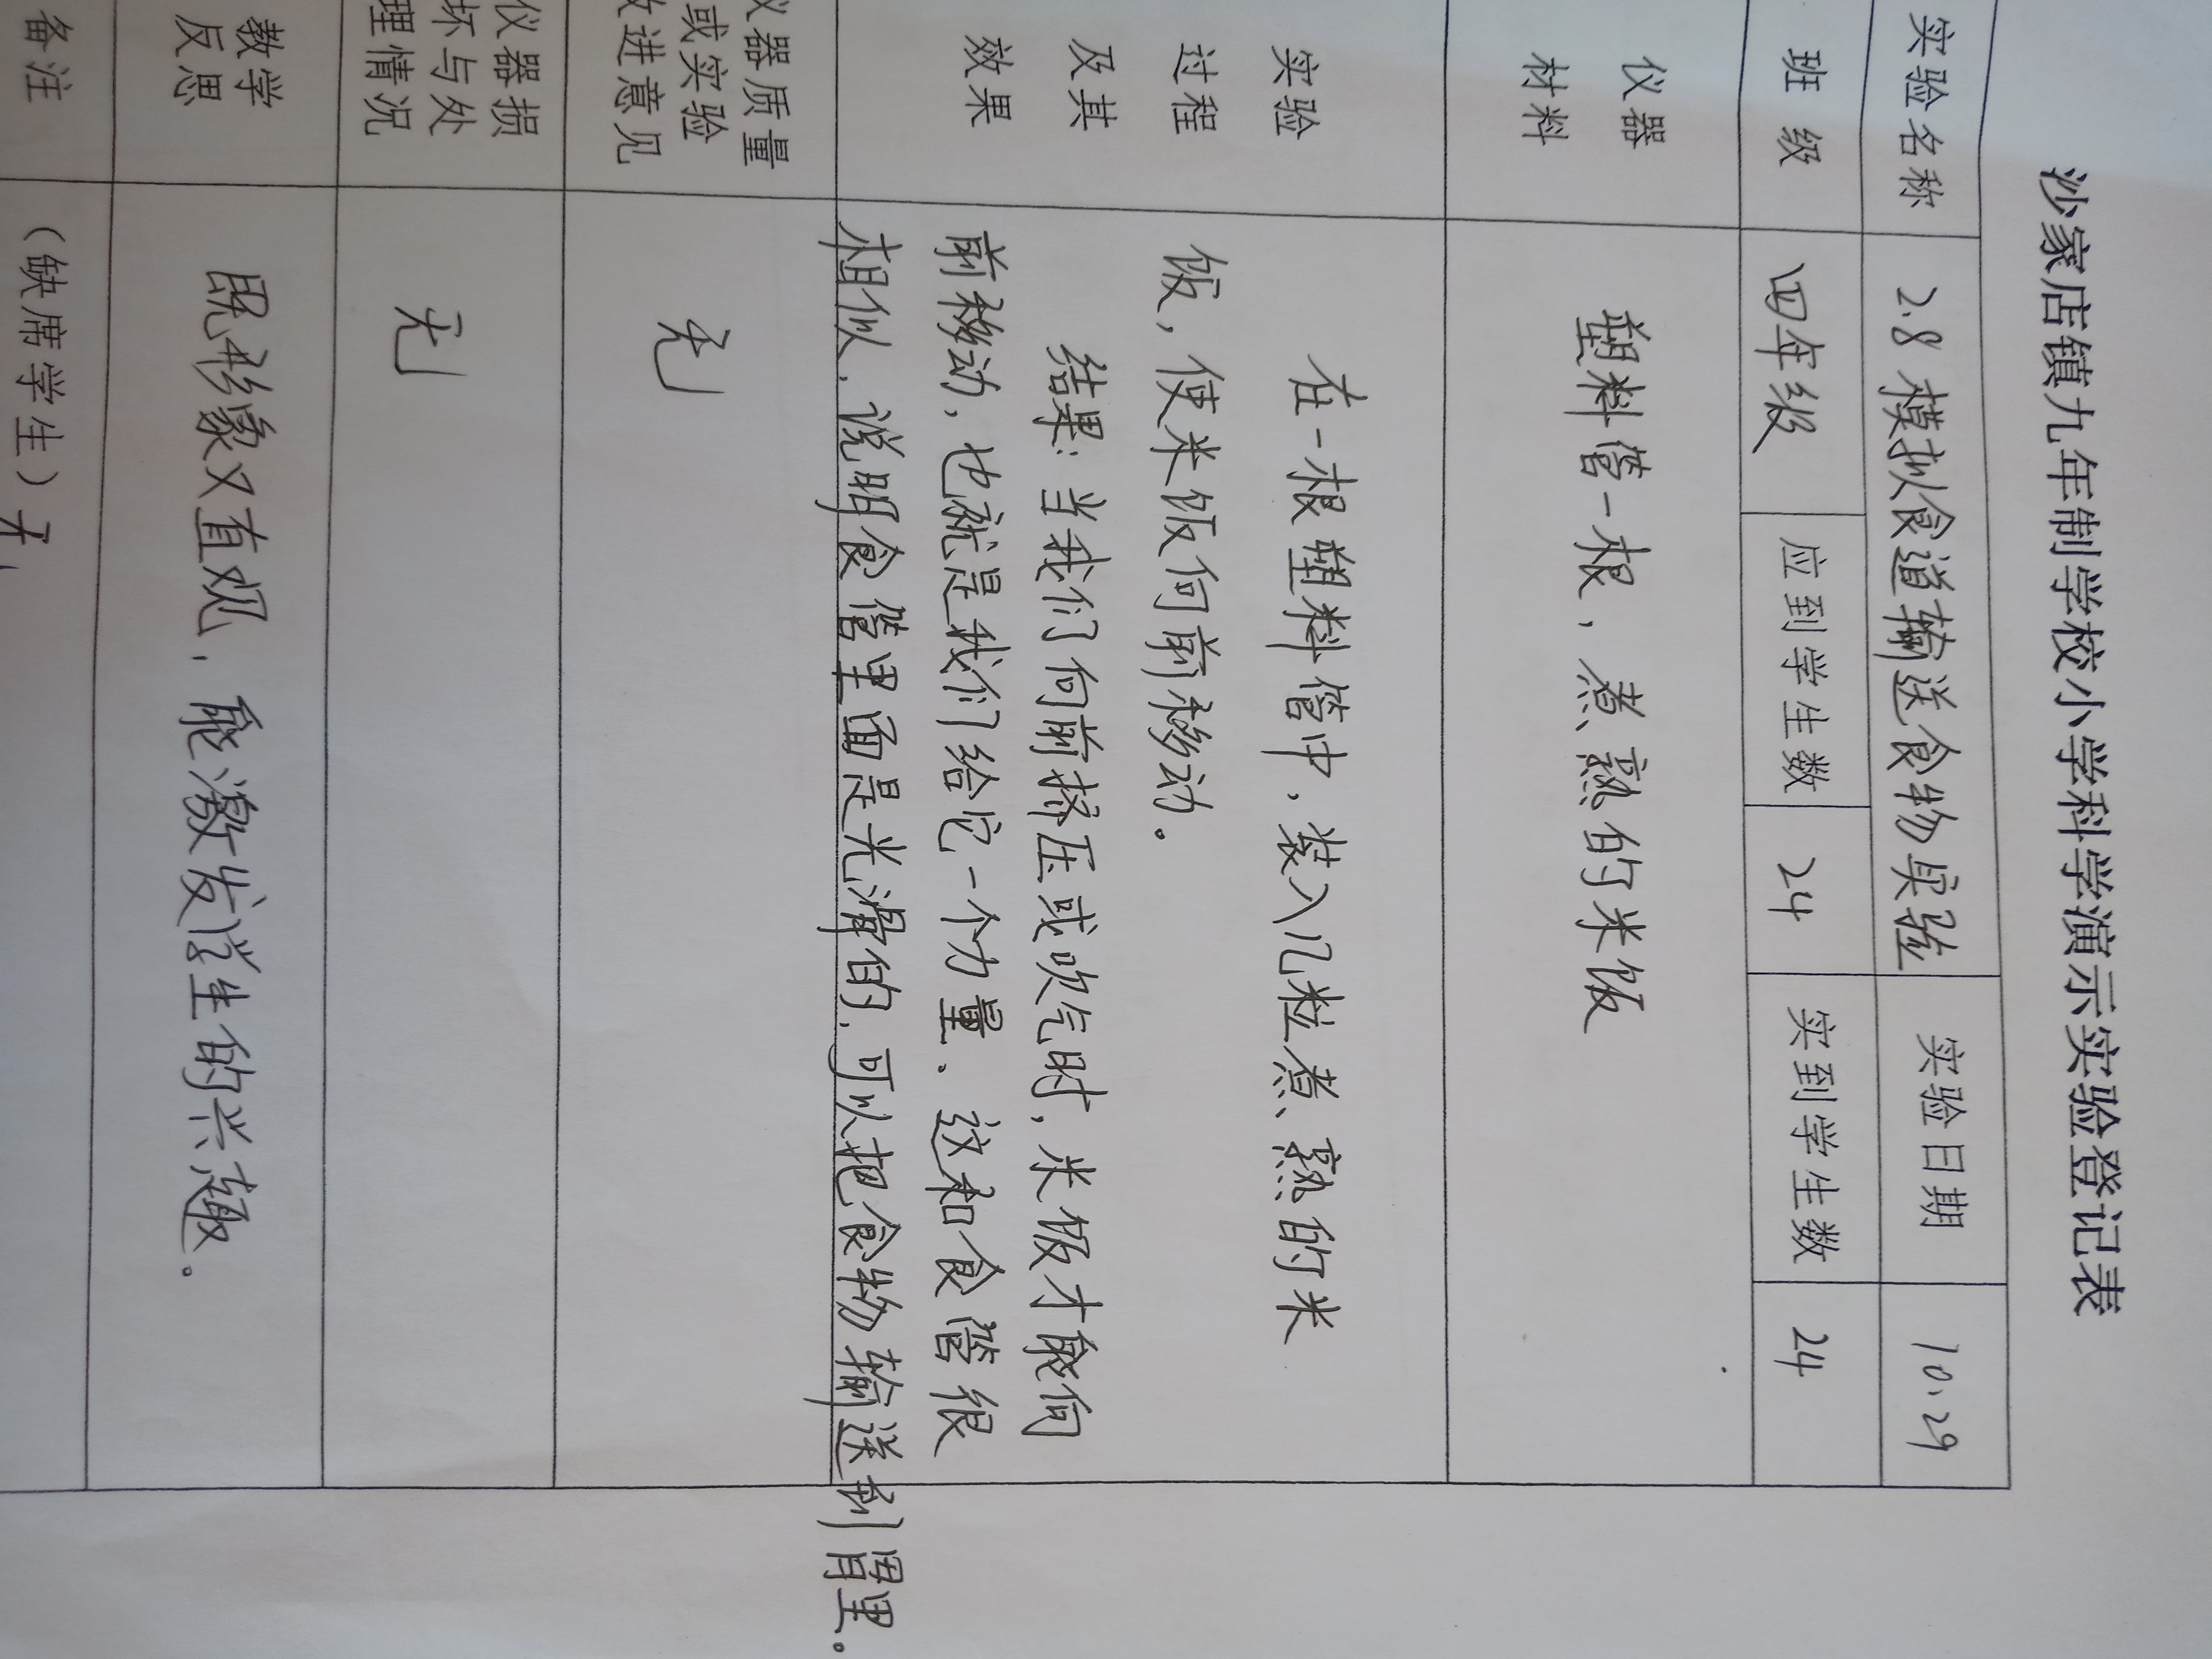 沙家店镇九年制学校小学科学演示实验登记表
实验名称 2.8 模拟食道输送食物实验 实验日期 10.29
班级 四年级 应到学生数 24 实到学生数 24
仪器
材料
塑料管一根，煮熟的米饭
实验
过程
及其
效果
在一根塑料管中，装入几粒煮熟的米
饭，使米饭向前移动。
结果：当我们向前挤压或吹气时，米饭才能向
前移动，也就是我们给它一个力量、这和食管很
相似．说明食管里面是光滑的．可以把食物输送到胃里。
仪器质量
或实验
改进意见
无
仪器损
坏与处
理情况
无
教学
反思
既形象又直观，能激发学生的兴趣。
备注 （缺席学生）无